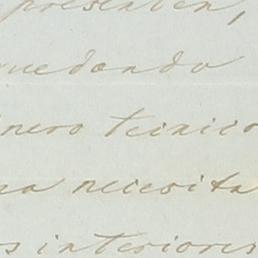 presenten,
quedando
nero tecnico
na necesita
s interiores